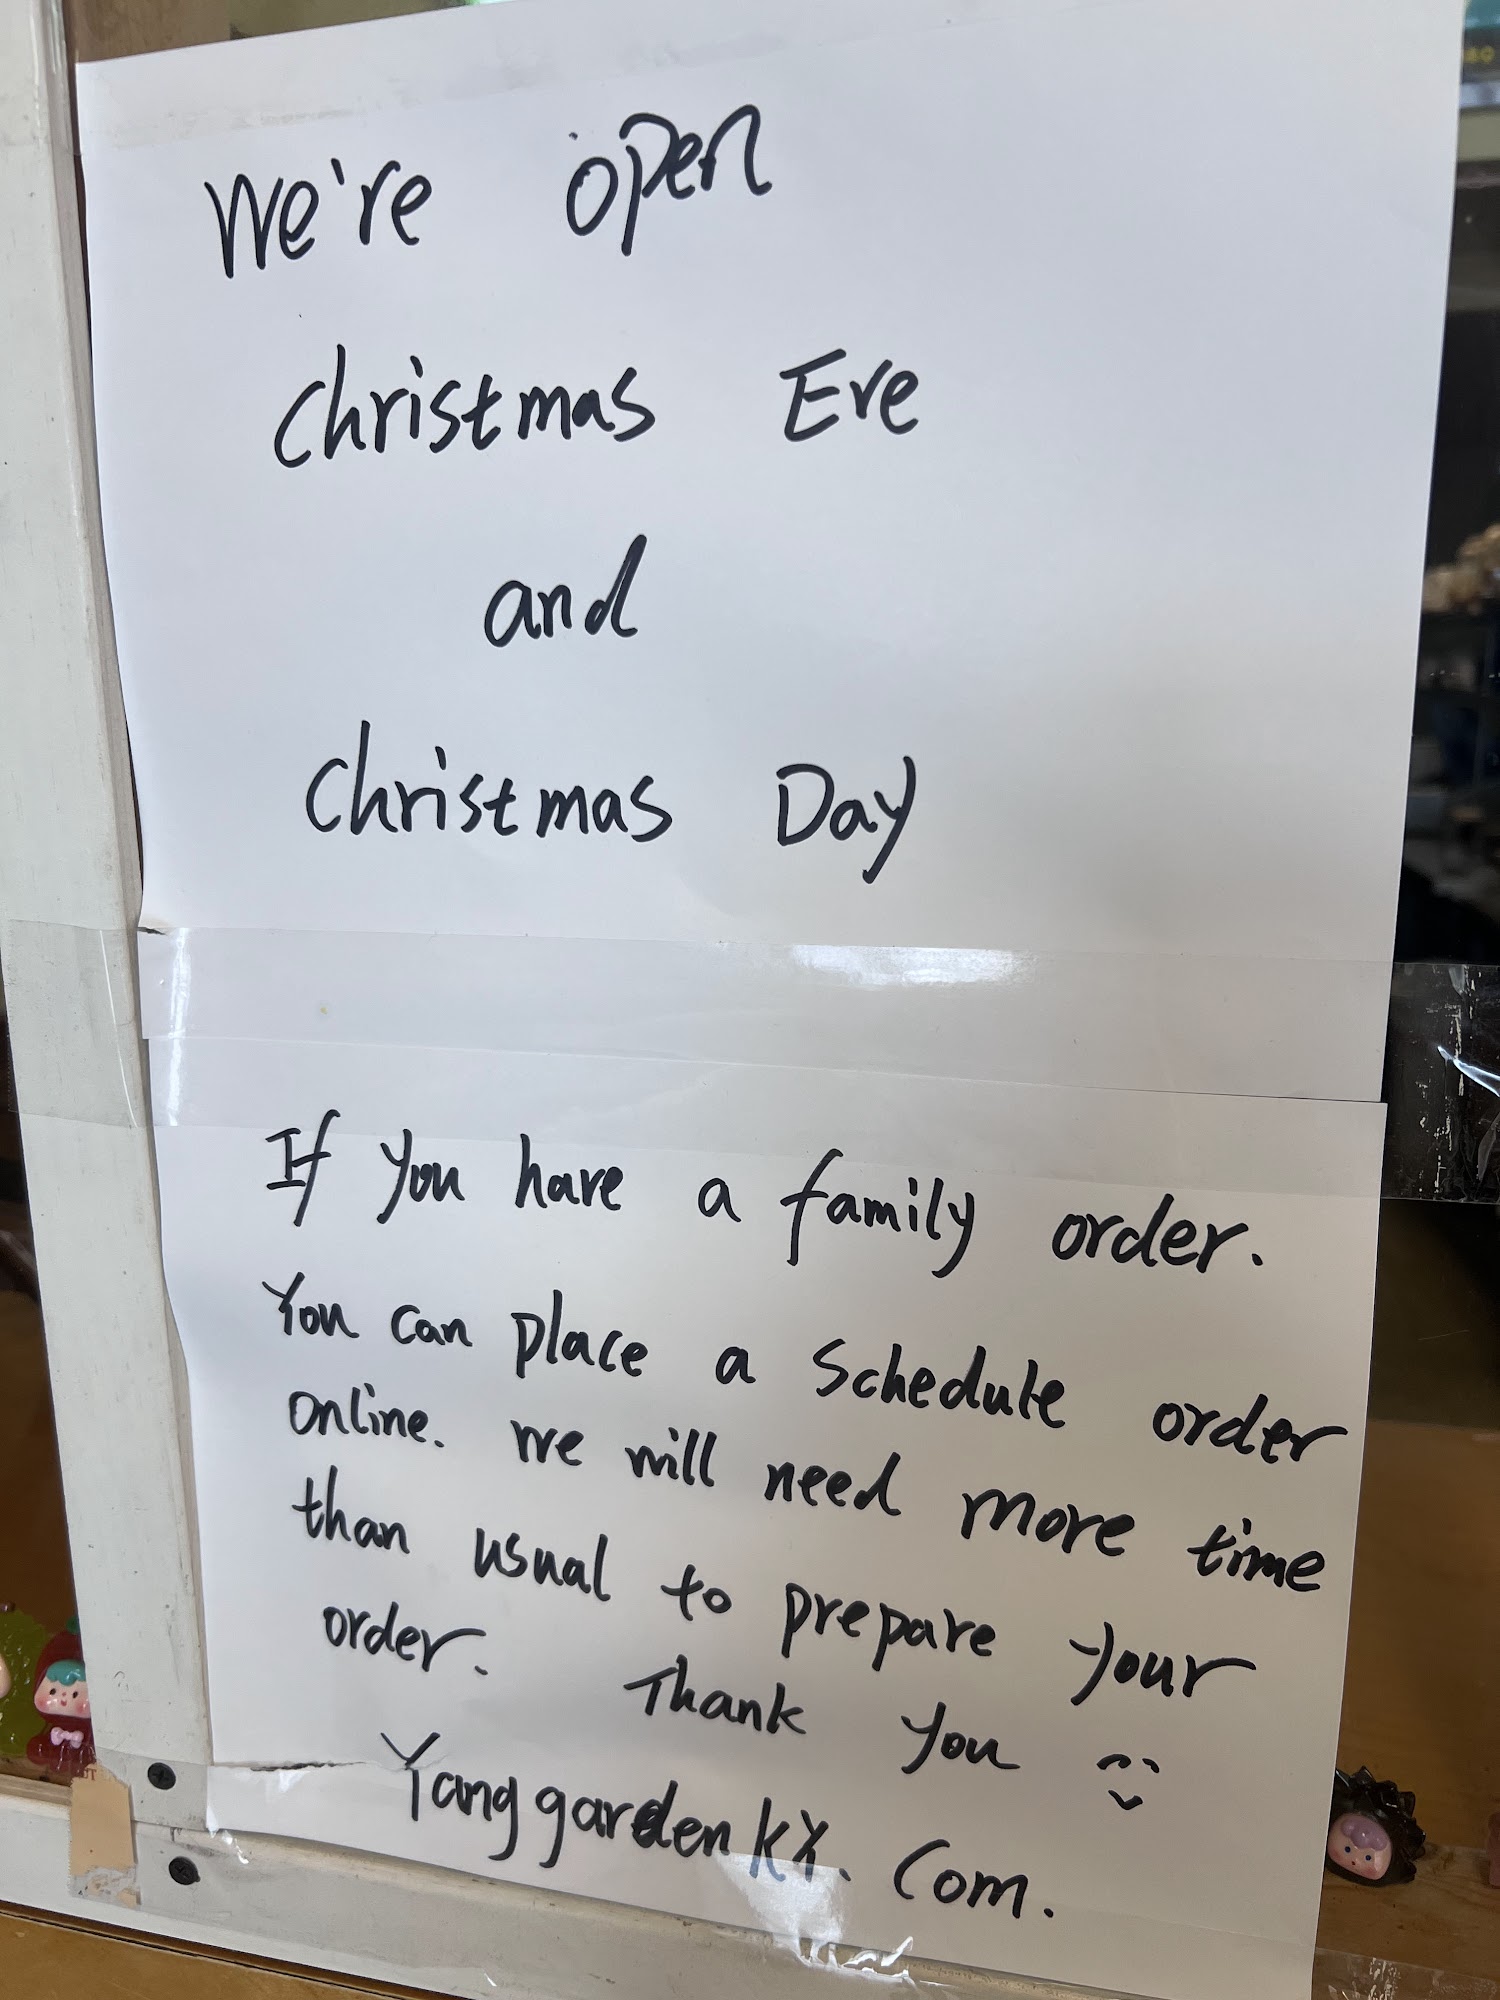 We're open
Christmas Eve
and
Christmas Day
If you have a family order.
You can place a schedule order
online. we will need more time
than usual to prepare your
order. Thank you
Yanggardenkx. Com.